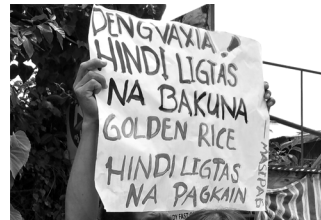 DENGVAXIA!
HINDI LIGTAS
NA BAKUNA
GOLDEN RICE
HINDI LIGTAS
NA PAGKAIN
MASIPAG